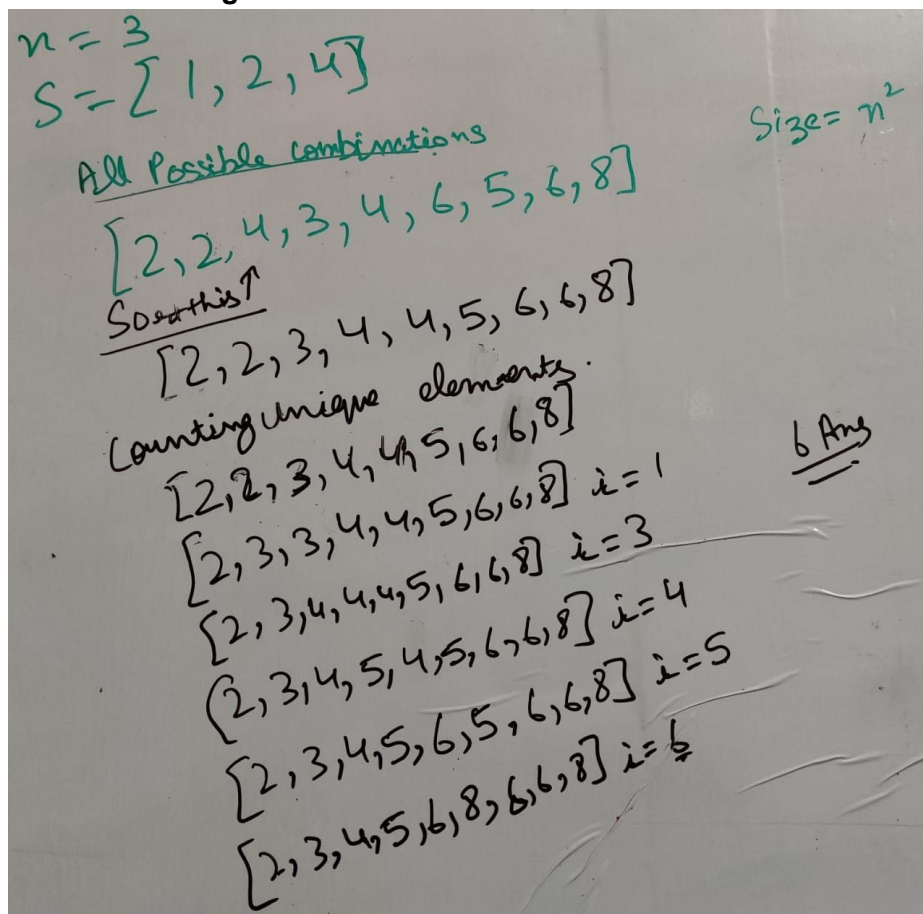 n = 3
S = [1, 2, 4]
Size = n²
All Possible combinations
[2, 2, 4, 3, 4, 6, 5, 6, 8]
Sort this ↑
[2, 2, 3, 4, 4, 5, 6, 6, 8]
Counting unique elements.
[2, 2, 3, 4, 4, 5, 6, 6, 8]
6 Ans
[2, 3, 3, 4, 4, 5, 6, 6, 8] i = 1
[2, 3, 4, 4, 4, 5, 6, 6, 8] i = 3
[2, 3, 4, 5, 4, 5, 6, 6, 8] i = 4
[2, 3, 4, 5, 6, 5, 6, 6, 8] i = 5
[2, 3, 4, 5, 6, 8, 6, 6, 8] i = 6